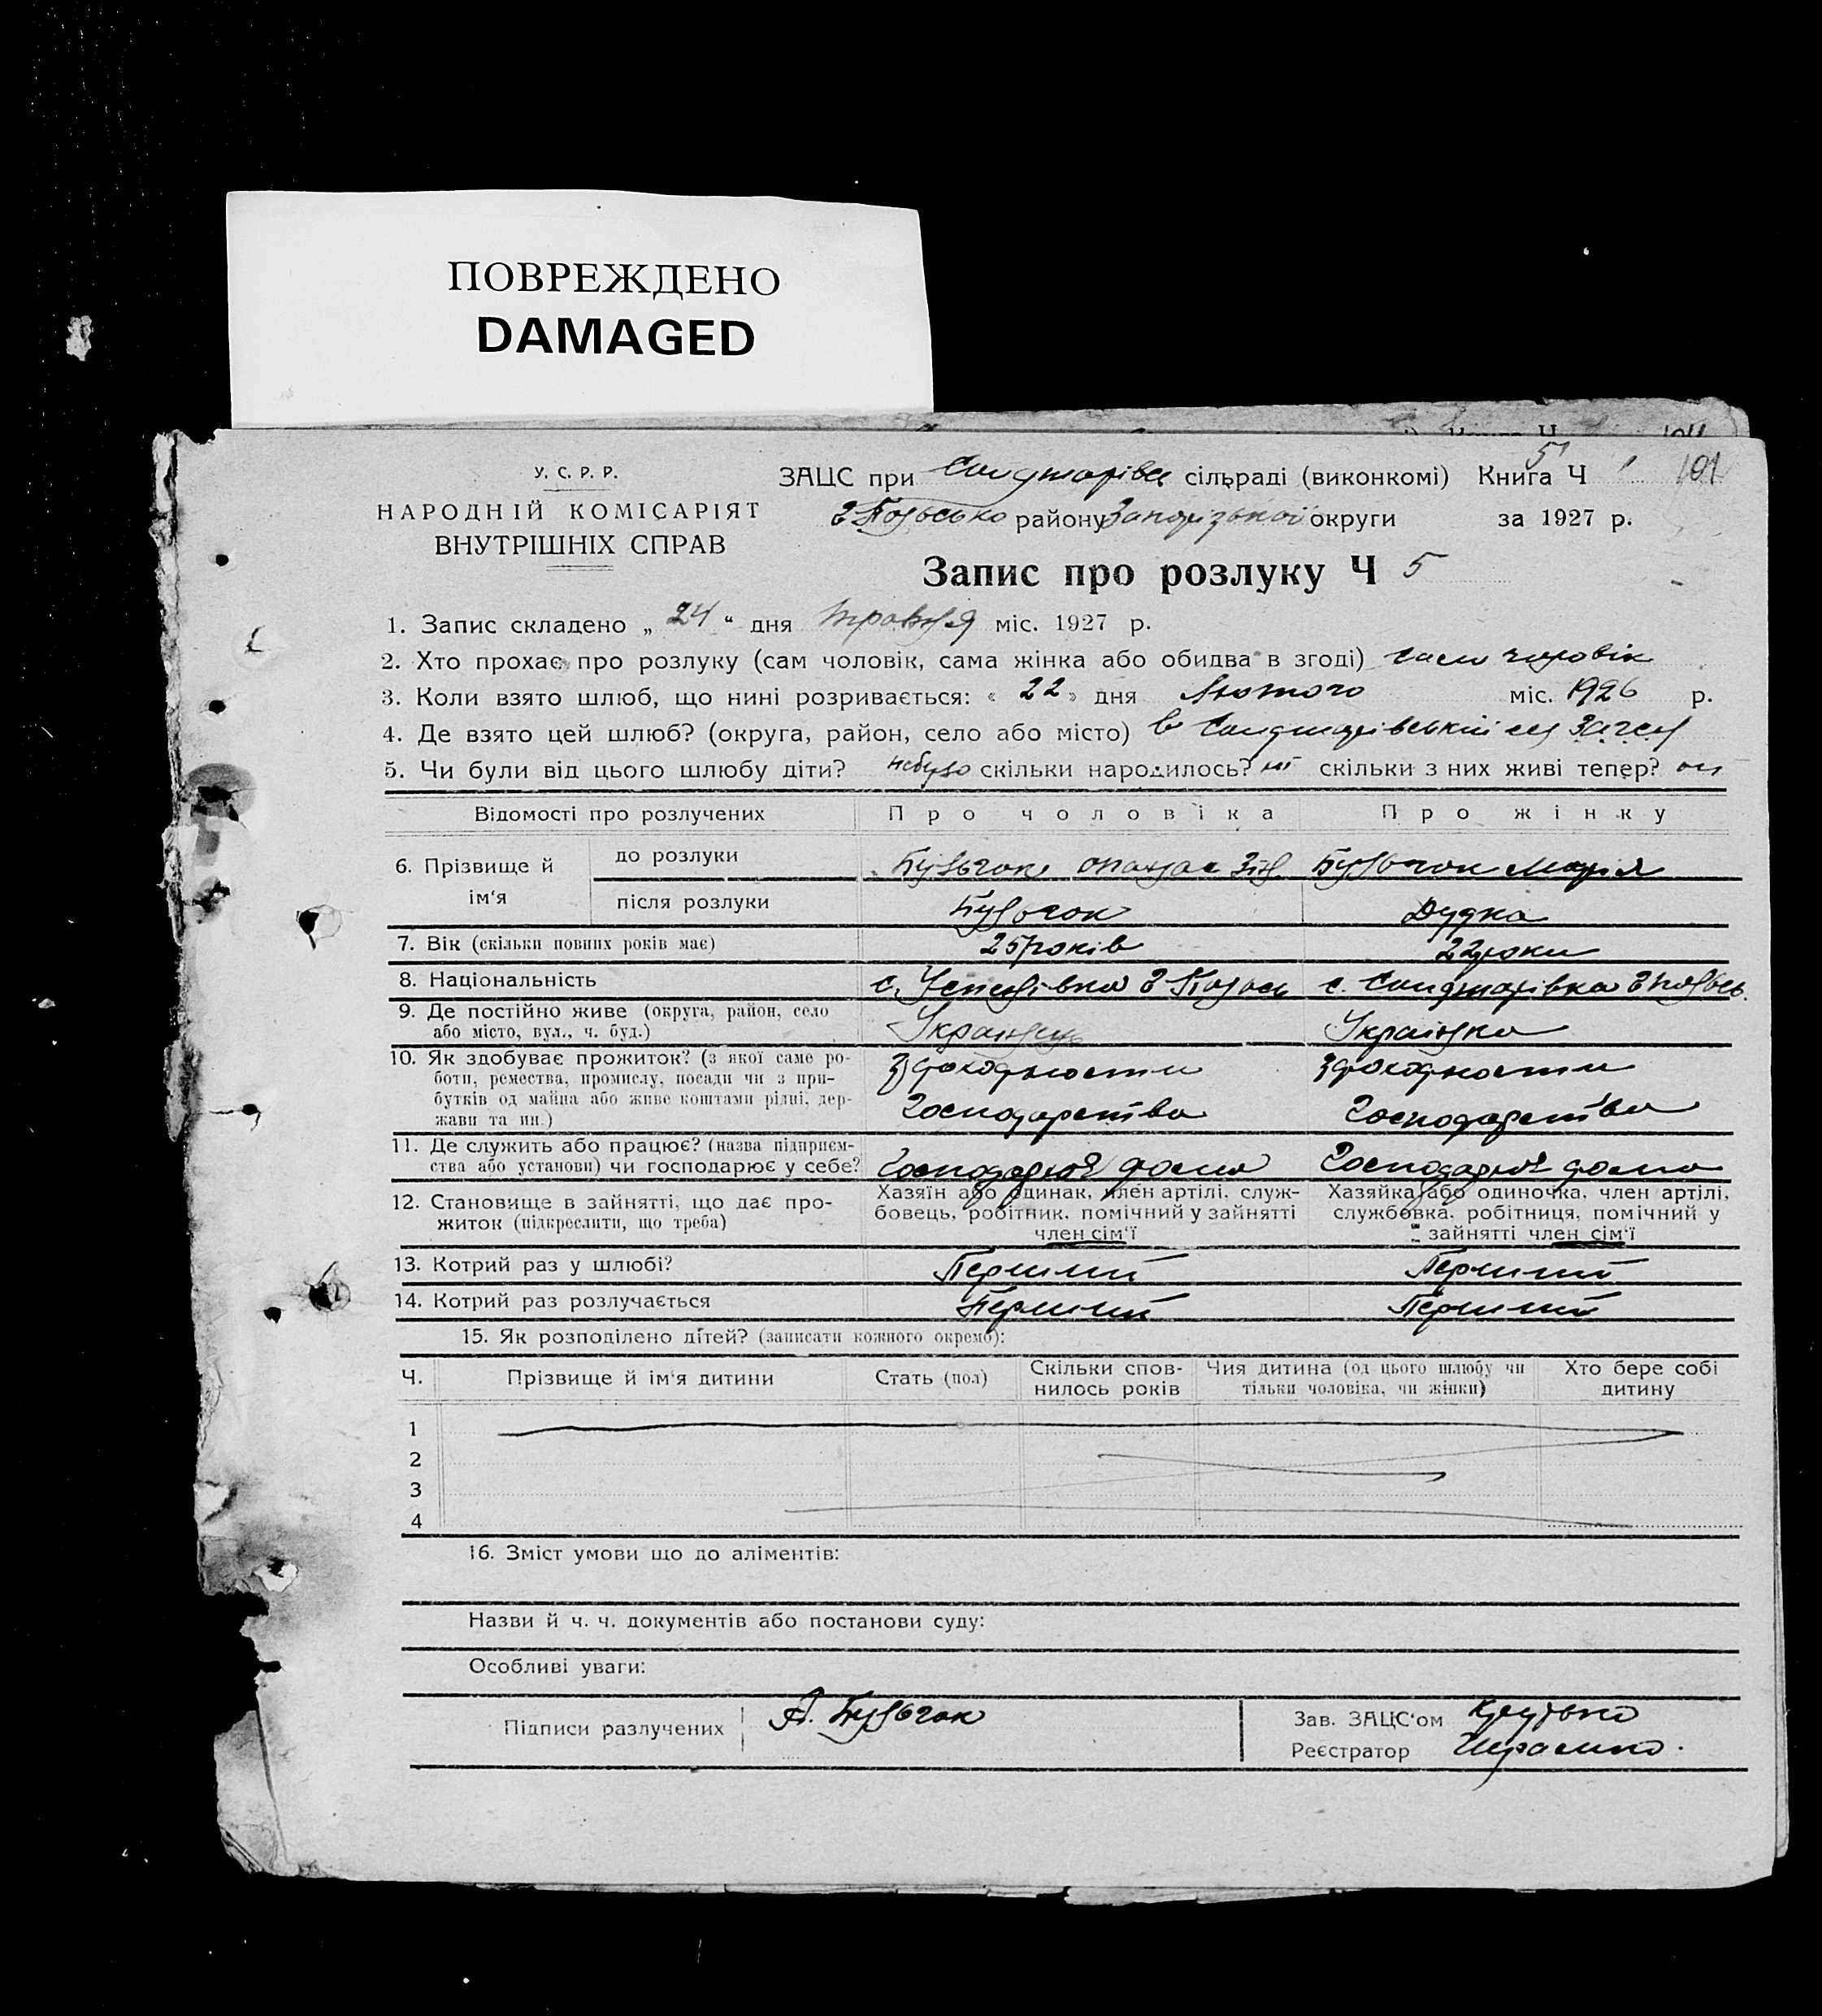 ПОВРЕЖДЕНО
DAMAGED
У. С. Р. Р.
НАРОДНІЙ КОМІСАРІЯТ
ВНУТРІШНІХ СПРАВ
ЗАЦС при сільраді (виконкомі) Книга Ч 5 101
району Запорізької округи за 1927 р.
Запис про розлуку Ч 5
1. Запис складено „ 24 “ дня травня міс. 1927 р.
2. Хто прохає про розлуку (сам чоловік, сама жінка або обидва в згоді) сам чоловік
3. Коли взято шлюб, що нині розривається: « 22 » дня Лютого міс. 1926 р.
4. Де взято цей шлюб? (округа, район, село або місто) в
5. Чи були від цього шлюбу діти? небуло скільки народилось? ні скільки з них живі тепер?
Відомості про розлучених Про чоловіка Про жінку
6. Прізвище й ім‘я до розлуки Бульчок Бульчок Марія
після розлуки Бульчок Дудка
7. Вік (скільки повних років має) 25 років 22 роки
8. Національність с. Успенівка с. Санджарівка
9. Де постійно живе (округа, район, село
або місто, вул., ч. буд.) Українець Українка
10. Як здобуває прожиток? (з якої саме ро-
боти, ремества, промислу, посади чи з при-
бутків од майна або живе коштами рідні, дер-
жави та ин.) з доходности Господарства з доходности Господарства
11. Де служить або працює? (назва підприєм-
ства або установи) чи господарює у себе? Господарює дома Господарює дома
12. Становище в зайнятті, що дає про-
житок (підкреслити, що треба)
Хазяїн або одинак, член артілі, служ-
бовець, робітник, помічний у зайнятті
член сім‘ї
Хазяйка або одиночка, член артілі,
службовка, робітниця, помічний у
зайнятті член сім‘ї
13. Котрий раз у шлюбі? Перший Перший
14. Котрий раз розлучається Перший Перший
15. Як розподілено дітей? (записати кожного окремо):
Ч. Прізвище й ім‘я дитини Стать (пол) Скільки спов-
нилось років Чия дитина (од цього шлюбу чи
тільки чоловіка, чи жінки) Хто бере собі
дитину
1
2
3
4
16. Зміст умови що до аліментів:
Назви й ч. ч. документів або постанови суду:
Особливі уваги:
Підписи разлучених А. Бульчок
Зав. ЗАЦС‘ом
Реєстратор